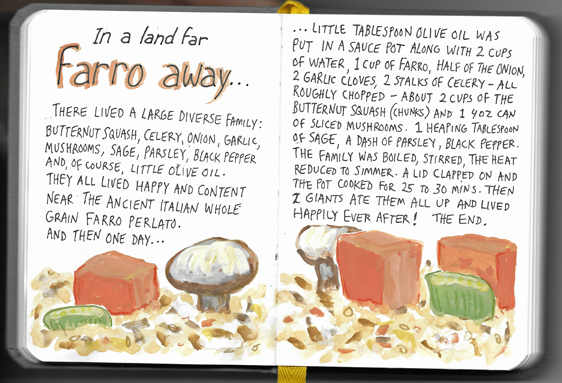 In a land far
Farro away...
THERE LIVED A LARGE DIVERSE FAMILY:
BUTTERNUT SQUASH, CELERY, ONION, GARLIC,
MUSHROOMS, SAGE, PARSLEY, BLACK PEPPER
AND, OF COURSE, LITTLE OLIVE OIL.
THEY ALL LIVED HAPPY AND CONTENT
NEAR THE ANCIENT ITALIAN WHOLE
GRAIN FARRO PERLATO.
AND THEN ONE DAY...
... LITTLE TABLESPOON OLIVE OIL WAS
PUT IN A SAUCE POT ALONG WITH 2 CUPS
OF WATER, 1 CUP OF FARRO, HALF OF THE ONION,
2 GARLIC CLOVES, 2 STALKS OF CELERY - ALL
ROUGHLY CHOPPED - ABOUT 2 CUPS OF THE
BUTTERNUT SQUASH (CHUNKS) AND 1 4OZ CAN
OF SLICED MUSHROOMS. 1 HEAPING TABLESPOON
OF SAGE, A DASH OF PARSLEY, BLACK PEPPER.
THE FAMILY WAS BOILED, STIRRED, THE HEAT
REDUCED TO SIMMER. A LID CLAPPED ON AND
THE POT COOKED FOR 25 TO 30 MINS. THEN
2 GIANTS ATE THEM ALL UP AND LIVED
HAPPILY EVER AFTER! THE END.